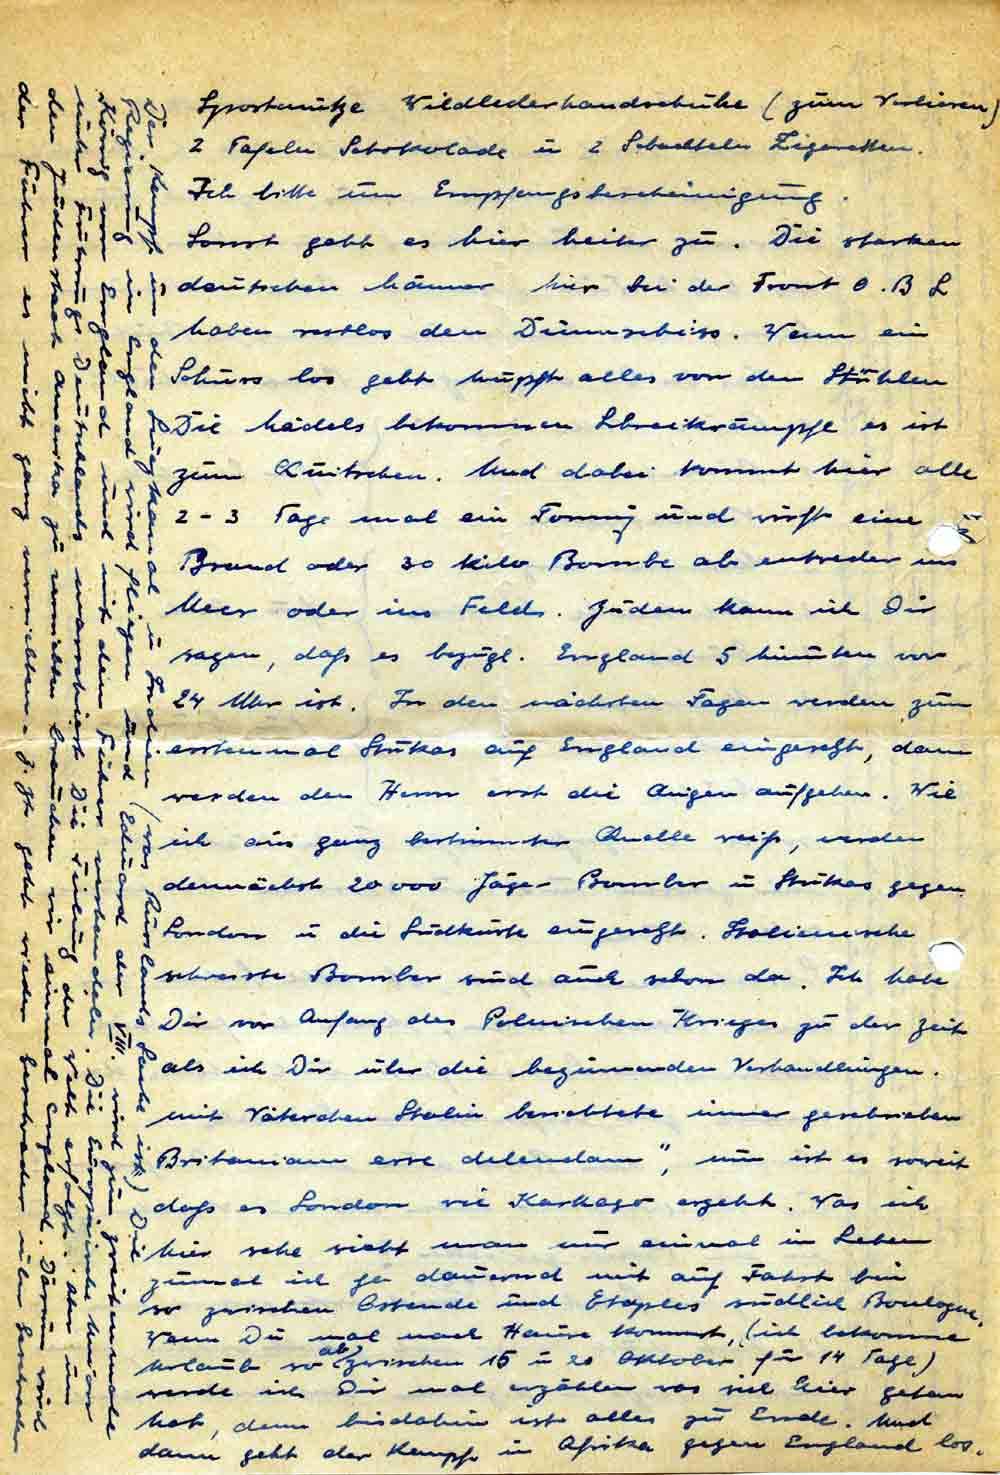 Sportmütze Wildlederhandschuhe (zum Verlieren)
2 Tafeln Schokolade u 2 Schachteln Zigaretten.
Ich bitte um Empfangsbescheinigung.
Sonst geht es hier heiter zu. Die starken
deutschen Männer hier bei der Front O.B L
haben restlos den Dünnschiss. Wenn ein
Schuss los geht hupft alles von den Stühlen
Die Mädels bekommen Schreikrämpfe es ist
zum Quitschen. Und dabei kommt hier alle
2-3 Tage mal ein Tommy und wirft eine
Brand oder 30 Kilo Bombe ab entweder ins
Meer oder ins Feld. Zudem kann ich Dir
sagen, daß es bezügl. England 5 Minuten vor
24 Uhr ist. In den nächsten Tagen werden zum
erstenmal Stukas auf England eingesetzt, dann
werden den Herrn erst die Augen aufgehen. Wie
ich aus ganz bestimmter Quelle weiß, werden
demnächst 20000 Jäger Bomber u Stukas gegen
London u die Südküste eingesetzt. Italienische
schwerste Bomber sind auch schon da. Ich habe
Dir vor Anfang des Polnischen Krieges zu der Zeit
als ich Dir über die beginnenden Verhandlungen.
mit Väterchen Stalin berichtete immer geschrieben
Britaniam esse delendam", nun ist es soweit
daß es London wie Karthago ergeht. Was ich
hier sehe sieht man nur einmal im Leben
zumal ich ja dauernd mit auf Fahrt bin
so zwischen Ostende und Etaples südlich Boulogne.
Wenn Du mal nach Hause kommst, (ich bekomme
Urlaub so ab zwischen 15 u 20 Oktober für 14 Tage)
werde ich Dir mal erzählen was sich hier getan
hat, denn bis dahin ist alles zu Ende. Und
dann geht der Kampf in Afrika gegen England los.
Der Kampf um den Suezkanal u Indien (was Russlands Sache ist) Die
Regierung in England wird fliegen und Eduard der VIII. wird zum zweitenmale
König von England und mit dem Führer verhandeln. Die Europäische Union
unter Führung Deutschlands marschiert. Die Teilung der Welt erfolgt. Aber um
den Judenstaat Amerika zu vernichten brauchen wir einmal England. Darum wird
der Führer es nicht ganz vernichten. Jetzt geht wieder Geschwader über Geschwader